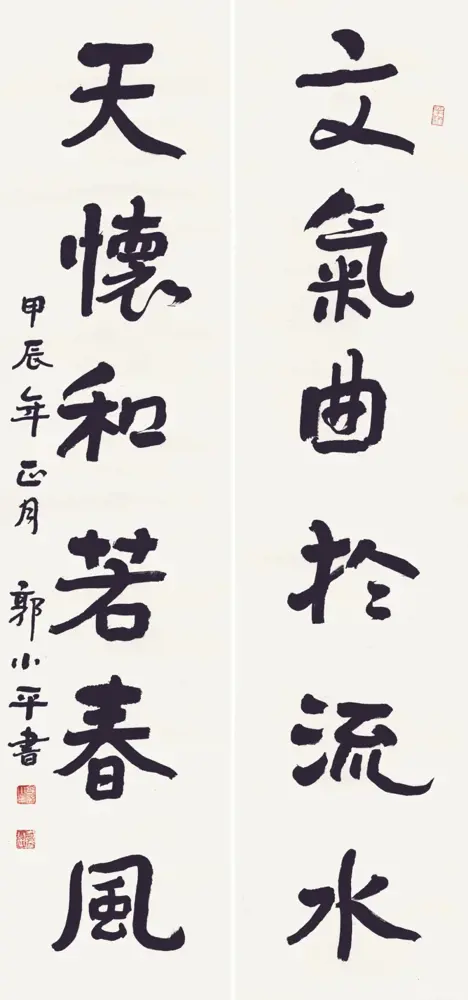 文氣曲於流水
天懷和若春風
甲辰年正月 郭小平書